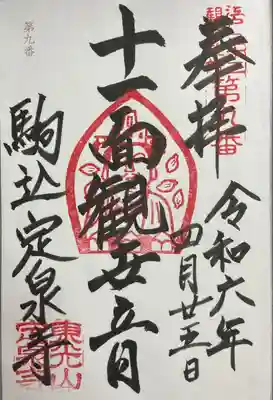 第九番
奉拝
令和六年
四月廿五日
十一面觀世音
第九番
駒込定泉寺
東光山
定泉寺